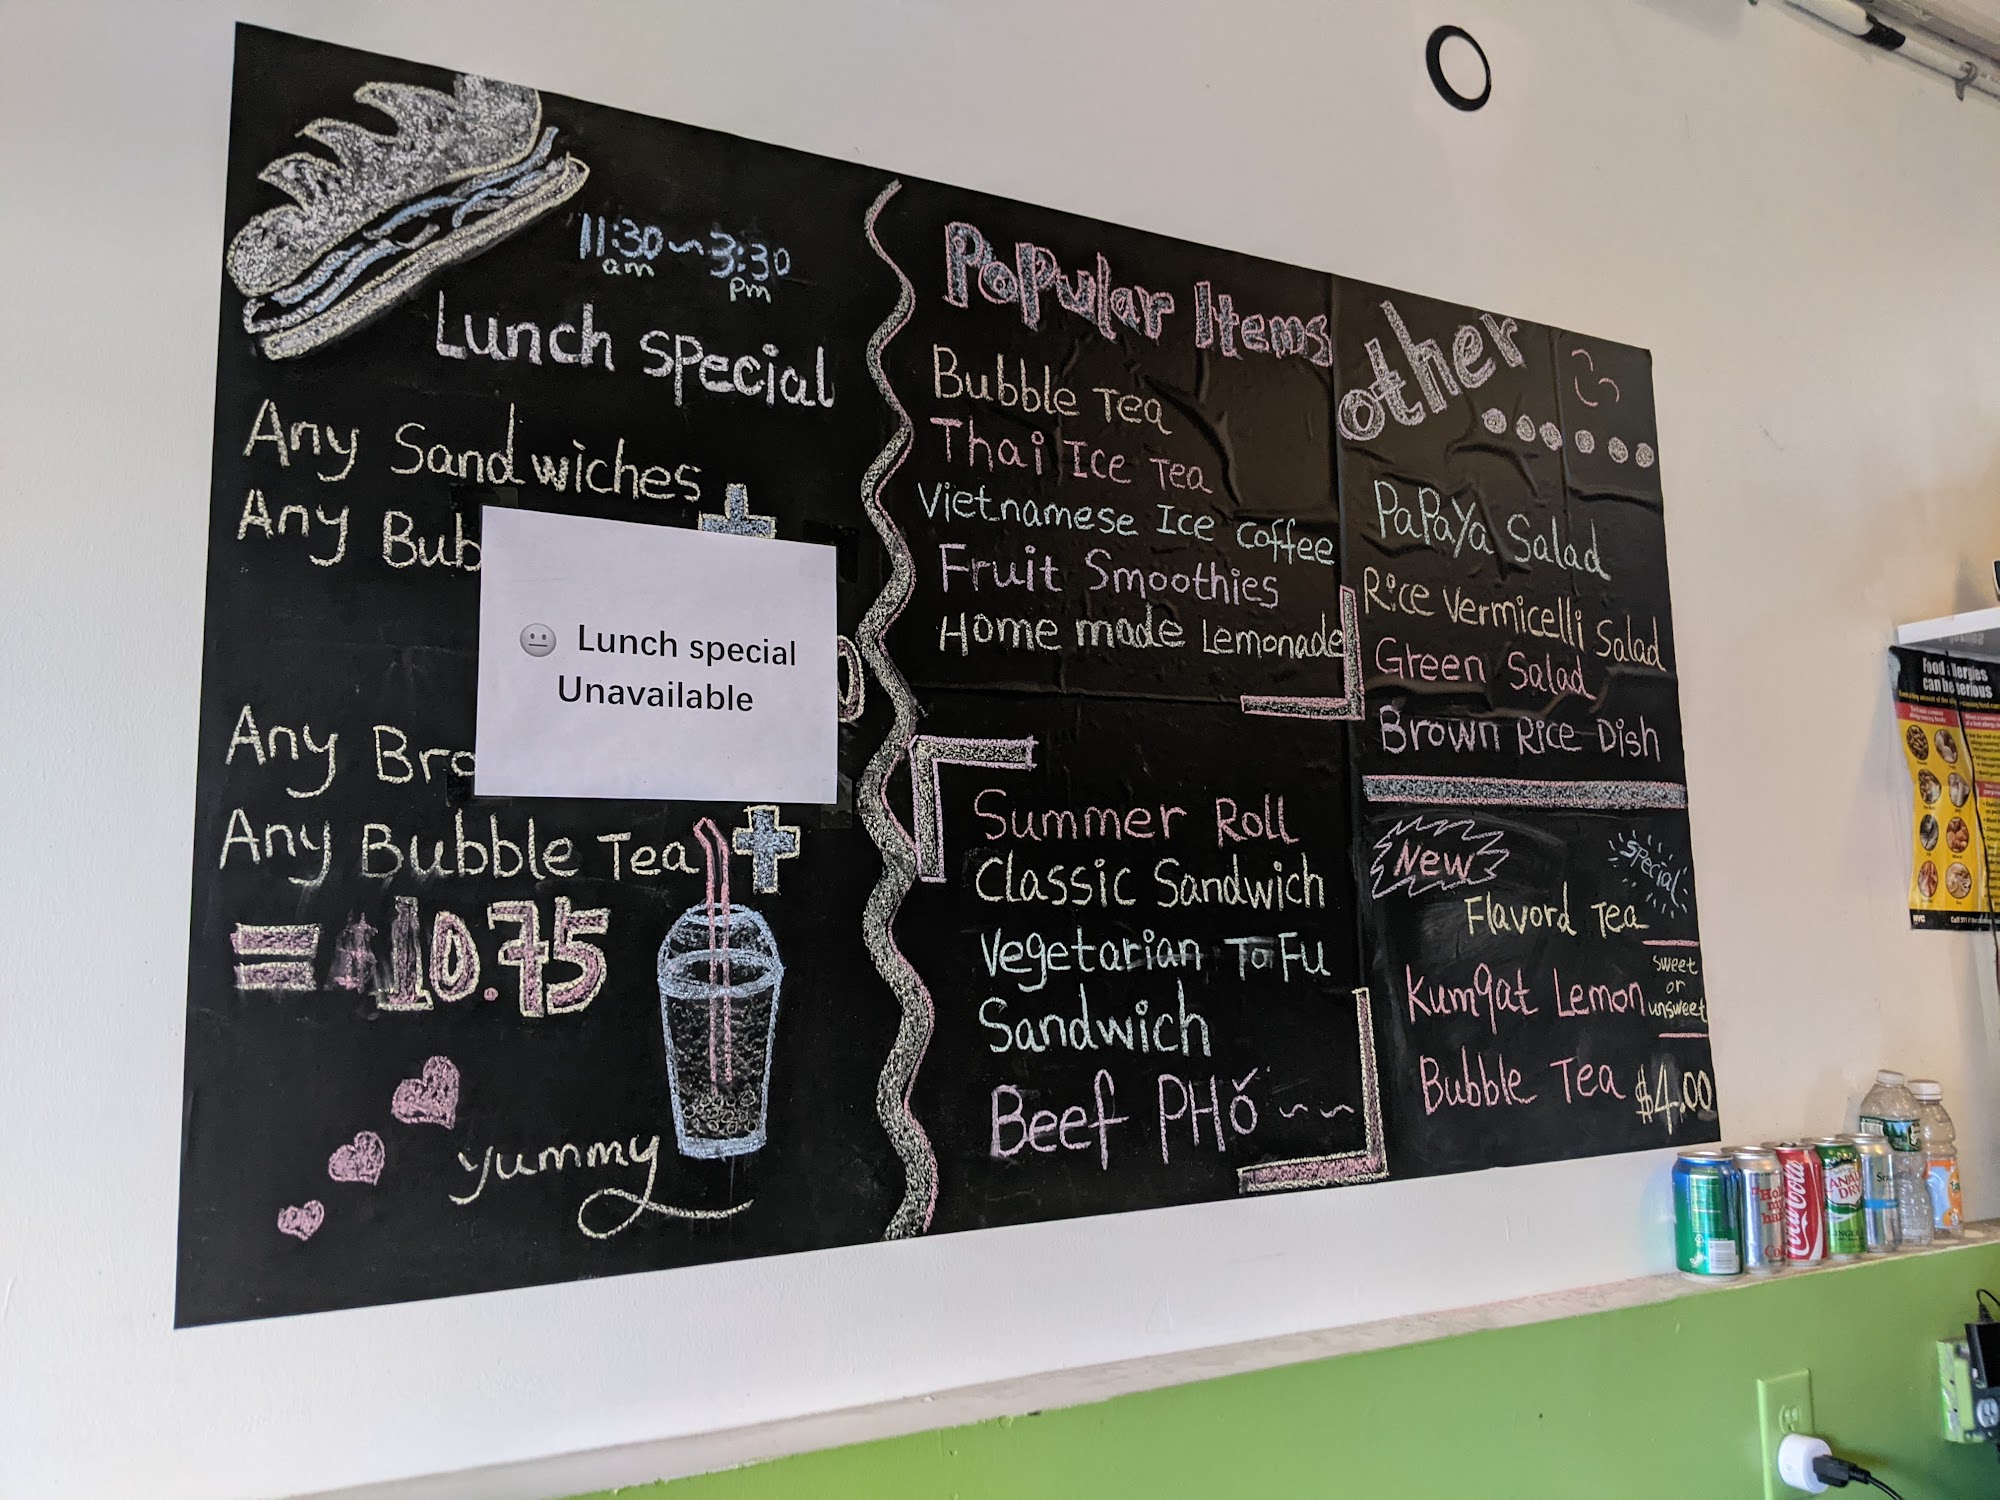 11:30 ~ 3:30
am pm
Lunch special
Any Sandwiches
Any Bub
Lunch special
Unavailable
Any Bro
Any Bubble Tea
= $10.75
yummy
Popular Items
Bubble Tea
Thai Ice Tea
Vietnamese Ice Coffee
Fruit Smoothies
Home made Lemonade
Summer Roll
Classic Sandwich
Vegetarian ToFu
Sandwich
Beef PHỏ ~~
other......
PaPaYa Salad
Rice Vermicelli Salad
Green Salad
Brown Rice Dish
New
special
Flavord Tea
Kumqat Lemon
sweet
or
unsweet
Bubble Tea $4.00
Food Allergies
can be serious
Coca-Cola
CANADA
DRY